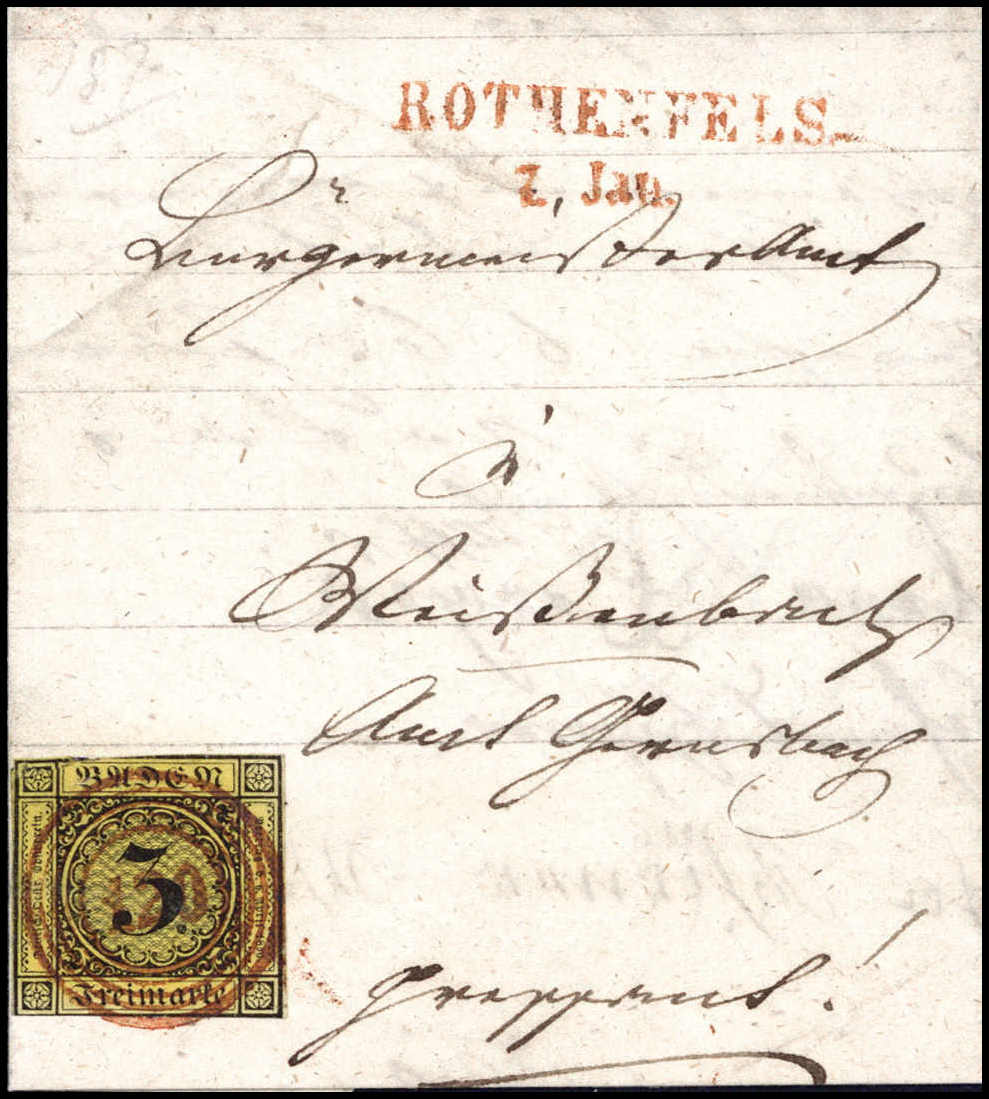 187
ROTHENFELS.
7. Jan.
Bürgermeisteramt
à
Weißenbach
Amt Gernsbach
BADEN
3
Freimarke